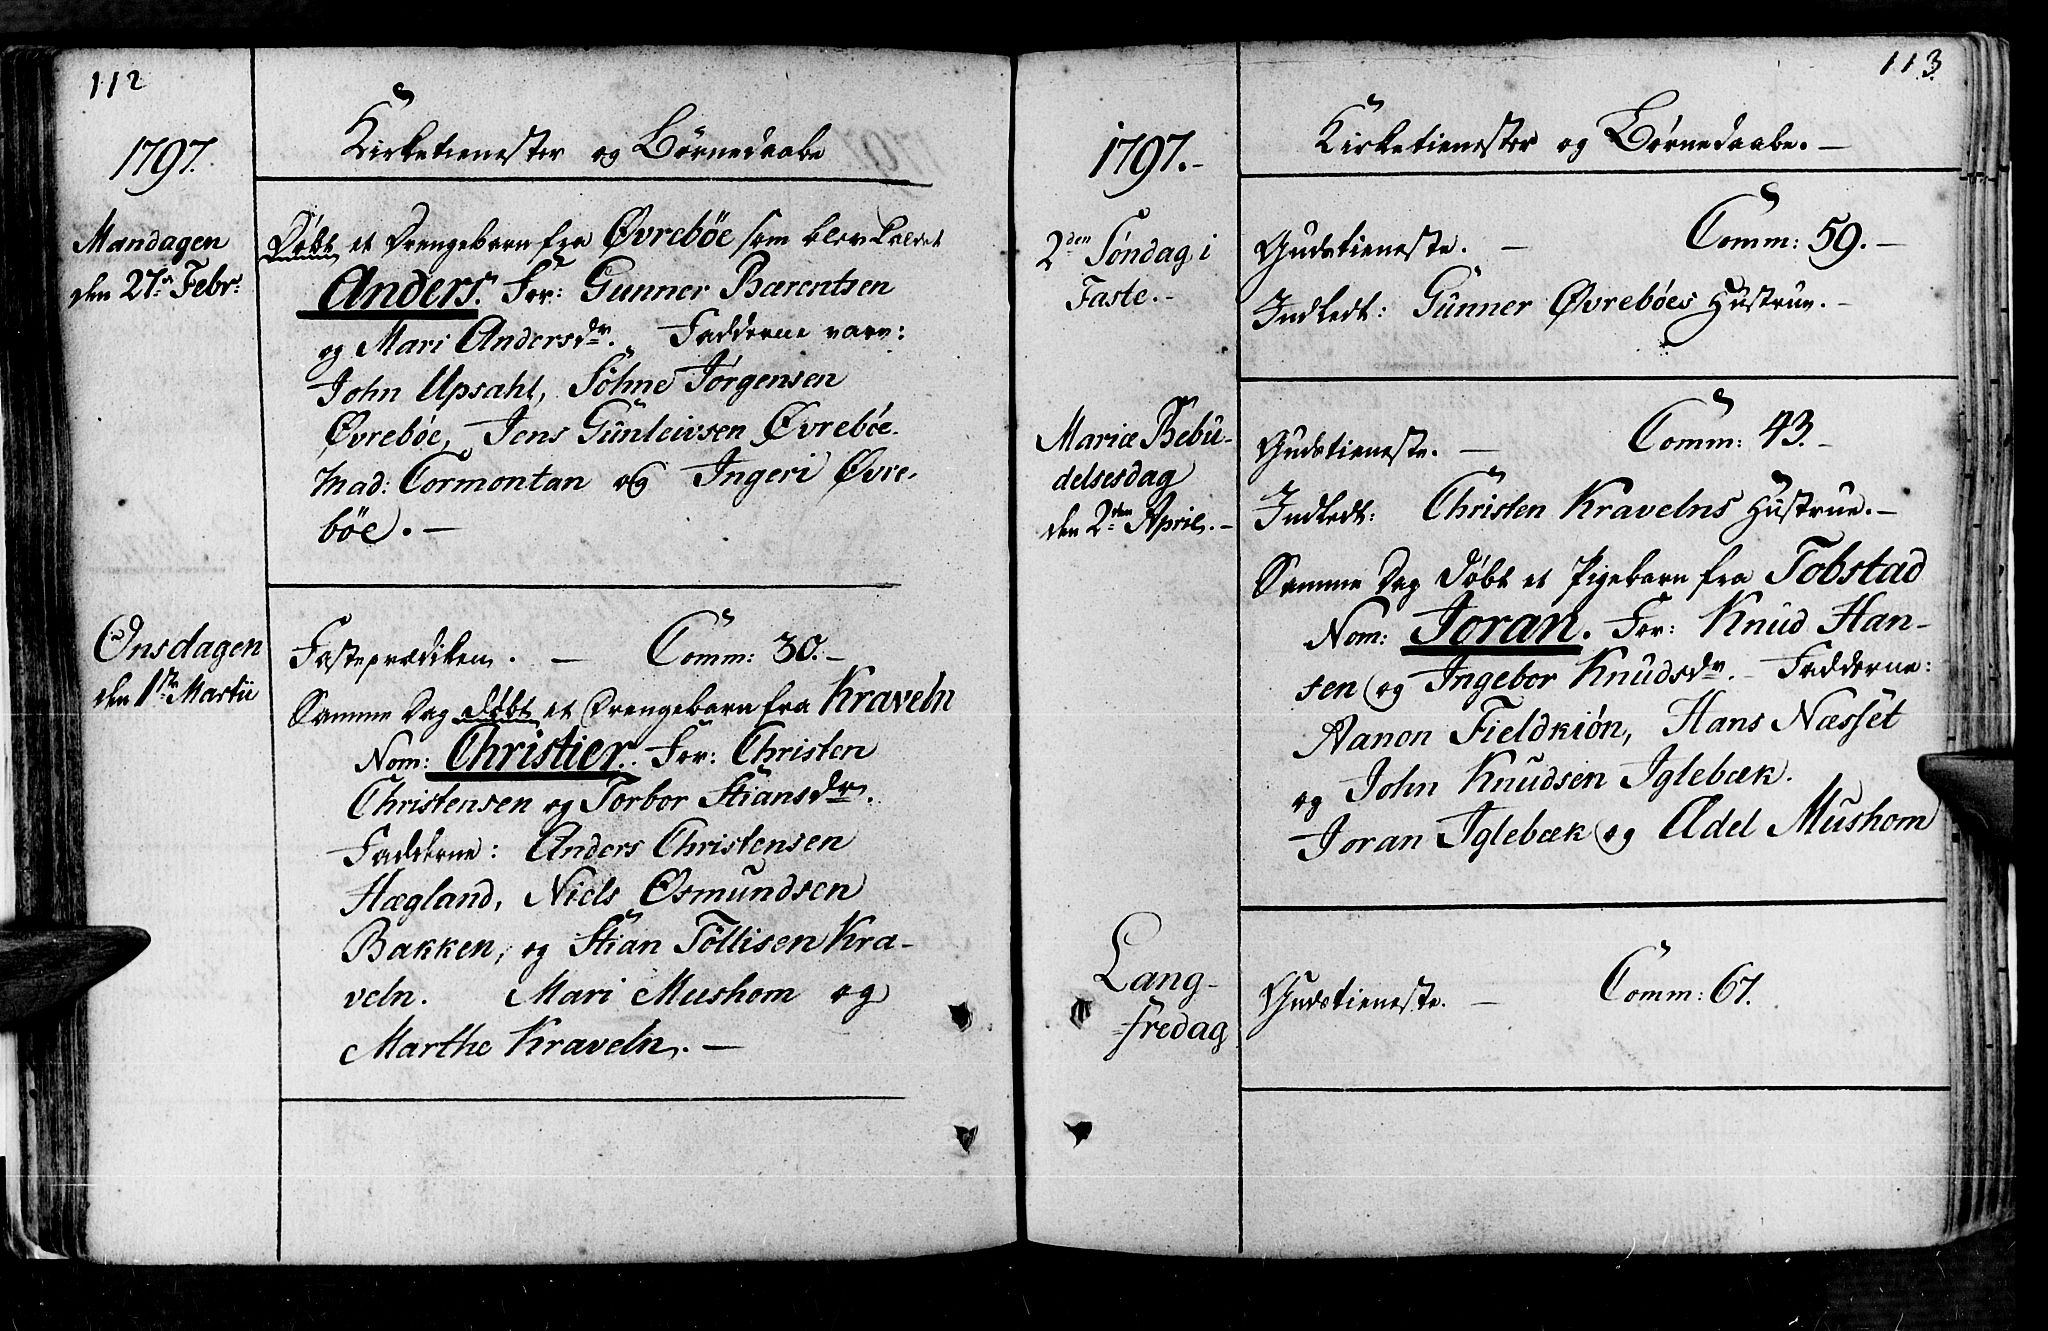 112
1797.
Kirketienester og Børnedaabe
Mandagen
den 27de Febr:
Døbt et Drengebarn fra Øvrebøe som blev kaldet
Anders. For: Gunner Bærentsen
og Mari Andersdr. Fadderne vare:
John Upsahl, Söhne Jørgensen
Øvrebøe, Jens Gunleivsen Øvrebøe.
Mad: Tormontan og Ingeri Øvre-
böe. —
Onsdagen
den 1ste Martii
Fasteprædiken. — Comm: 30. —
Samme Dag døbt et Drengebarn fra Kraveln
Nom: Christier. For: Christen
Christensen og Torbor Stiansdr.
Fadderne: Anders Christensen
Hægland, Niels Osmundsen
Bakken, og Stian Tollisen Kra-
veln. Mari Mushom og
Marthe Kraveln. —
113.
1797. -
Kirketienester og Børnedaabe. —
2den Søndag i
Faste. -
Gudstieneste. — Comm: 59. —
Indledt: Gunner Øvrebøes Hustrue. —
Mariæ Bebu-
delsesdag
den 2den April. —
Gudstieneste. — Comm: 43. -
Indledt: Christen Kravelns Hustrue. —
Samme Dag døbt et Pigebarn fra Tobstad
Nom: Joran. For: Knud Han-
sen og Ingebor Knudsdr. - Fadderne:
Aanon Fieldkiøn, Hans Næsset
og John Knudsen Iglebæk.
Joran Iglebæk og Adel Mushom
Lang-
fredag
Gudstieneste. — Comm: 67.